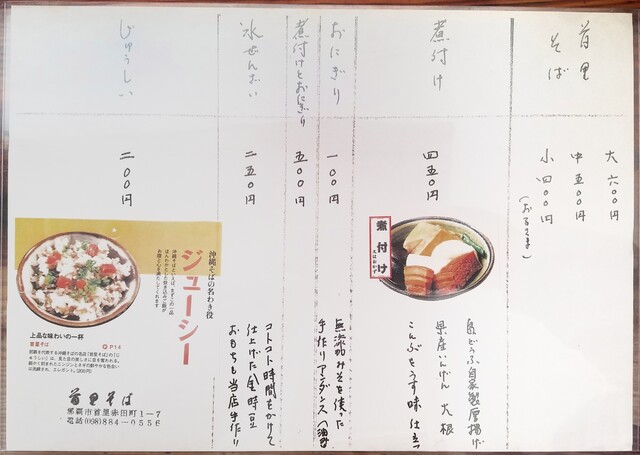 首里そば
大 六〇〇円
中 五〇〇円
小 四〇〇円
(おこさま)
煮付け
四五〇円
煮付け
島どうふ自家製厚揚げ
県産いんげん 大根
こんぶをうす味仕立
おにぎり
一〇〇円
無添加みそを使った
手作りアンダンスー(油みそ)
煮付けとおにぎり
五〇〇円
氷ぜんざい
二五〇円
コトコト時間をかけて
仕上げた金時豆
おもちも当店手作り
じゅうしい
二〇〇円
沖縄そばの名わき役
ジューシー
上品な味わいの一杯
首里そば
P14
首里そば
那覇市首里赤田町1-7
電話(098)884-0556